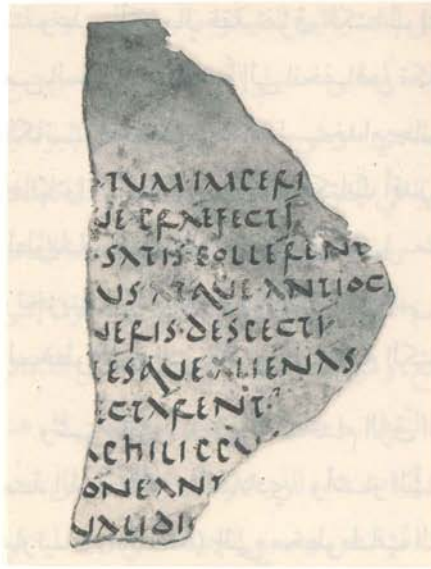 ·TUM·IMPERI
UE PRAEFECTI
·SATIS·POLLERENT
US·ATQUE·ANTIOC
UERIS·DESPECTI
TESQUE·ALIENAS
ECTARENT·
APHILIPPU
ONEANT
UALIDI